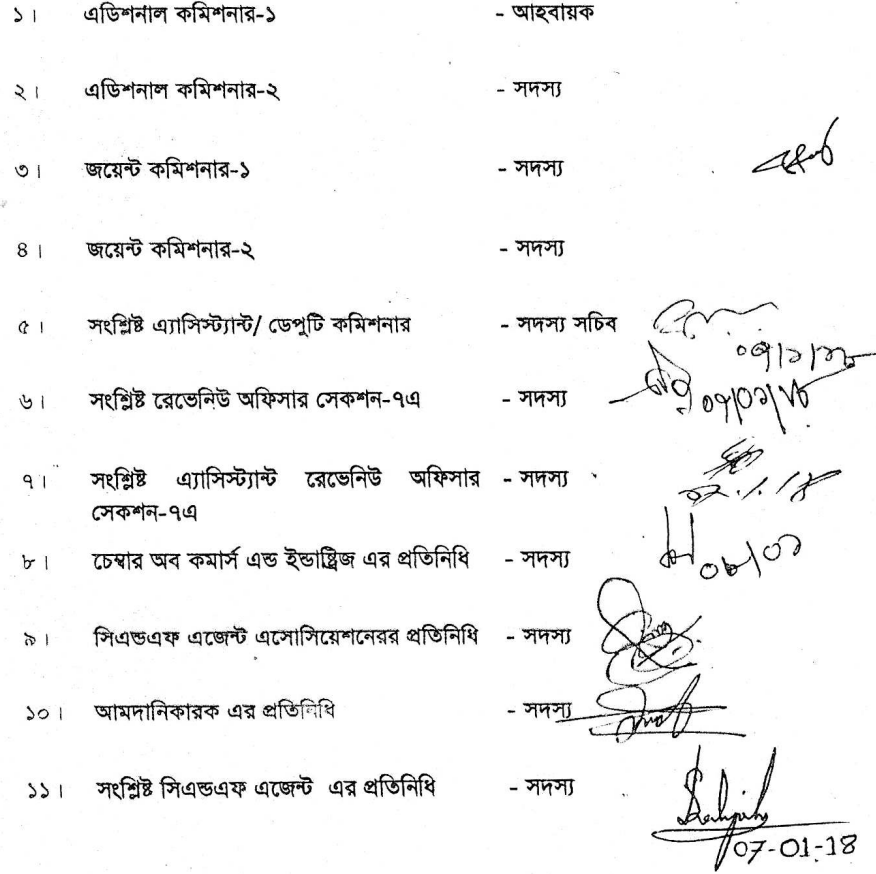 ১। এডিশনাল কমিশনার-১ - আহবায়ক
২। এডিশনাল কমিশনার-২ - সদস্য
৩। জয়েন্ট কমিশনার-১ - সদস্য
৪। জয়েন্ট কমিশনার-২ - সদস্য
৫। সংশ্লিষ্ট এ্যাসিস্ট্যান্ট/ ডেপুটি কমিশনার - সদস্য সচিব
০৭/১/১৮
৬। সংশ্লিষ্ট রেভেনিউ অফিসার সেকশন-৭এ - সদস্য
০৭/০১/১৮
৭। সংশ্লিষ্ট এ্যাসিস্ট্যান্ট রেভেনিউ অফিসার - সদস্য
সেকশন-৭এ
৮। চেম্বার অব কমার্স এন্ড ইন্ডাষ্ট্রিজ এর প্রতিনিধি - সদস্য
০৮/০১
৯। সিএন্ডএফ এজেন্ট এসোসিয়েশনেরর প্রতিনিধি - সদস্য
১০। আমদানিকারক এর প্রতিনিধি - সদস্য
১১। সংশ্লিষ্ট সিএন্ডএফ এজেন্ট এর প্রতিনিধি - সদস্য
07-01-18